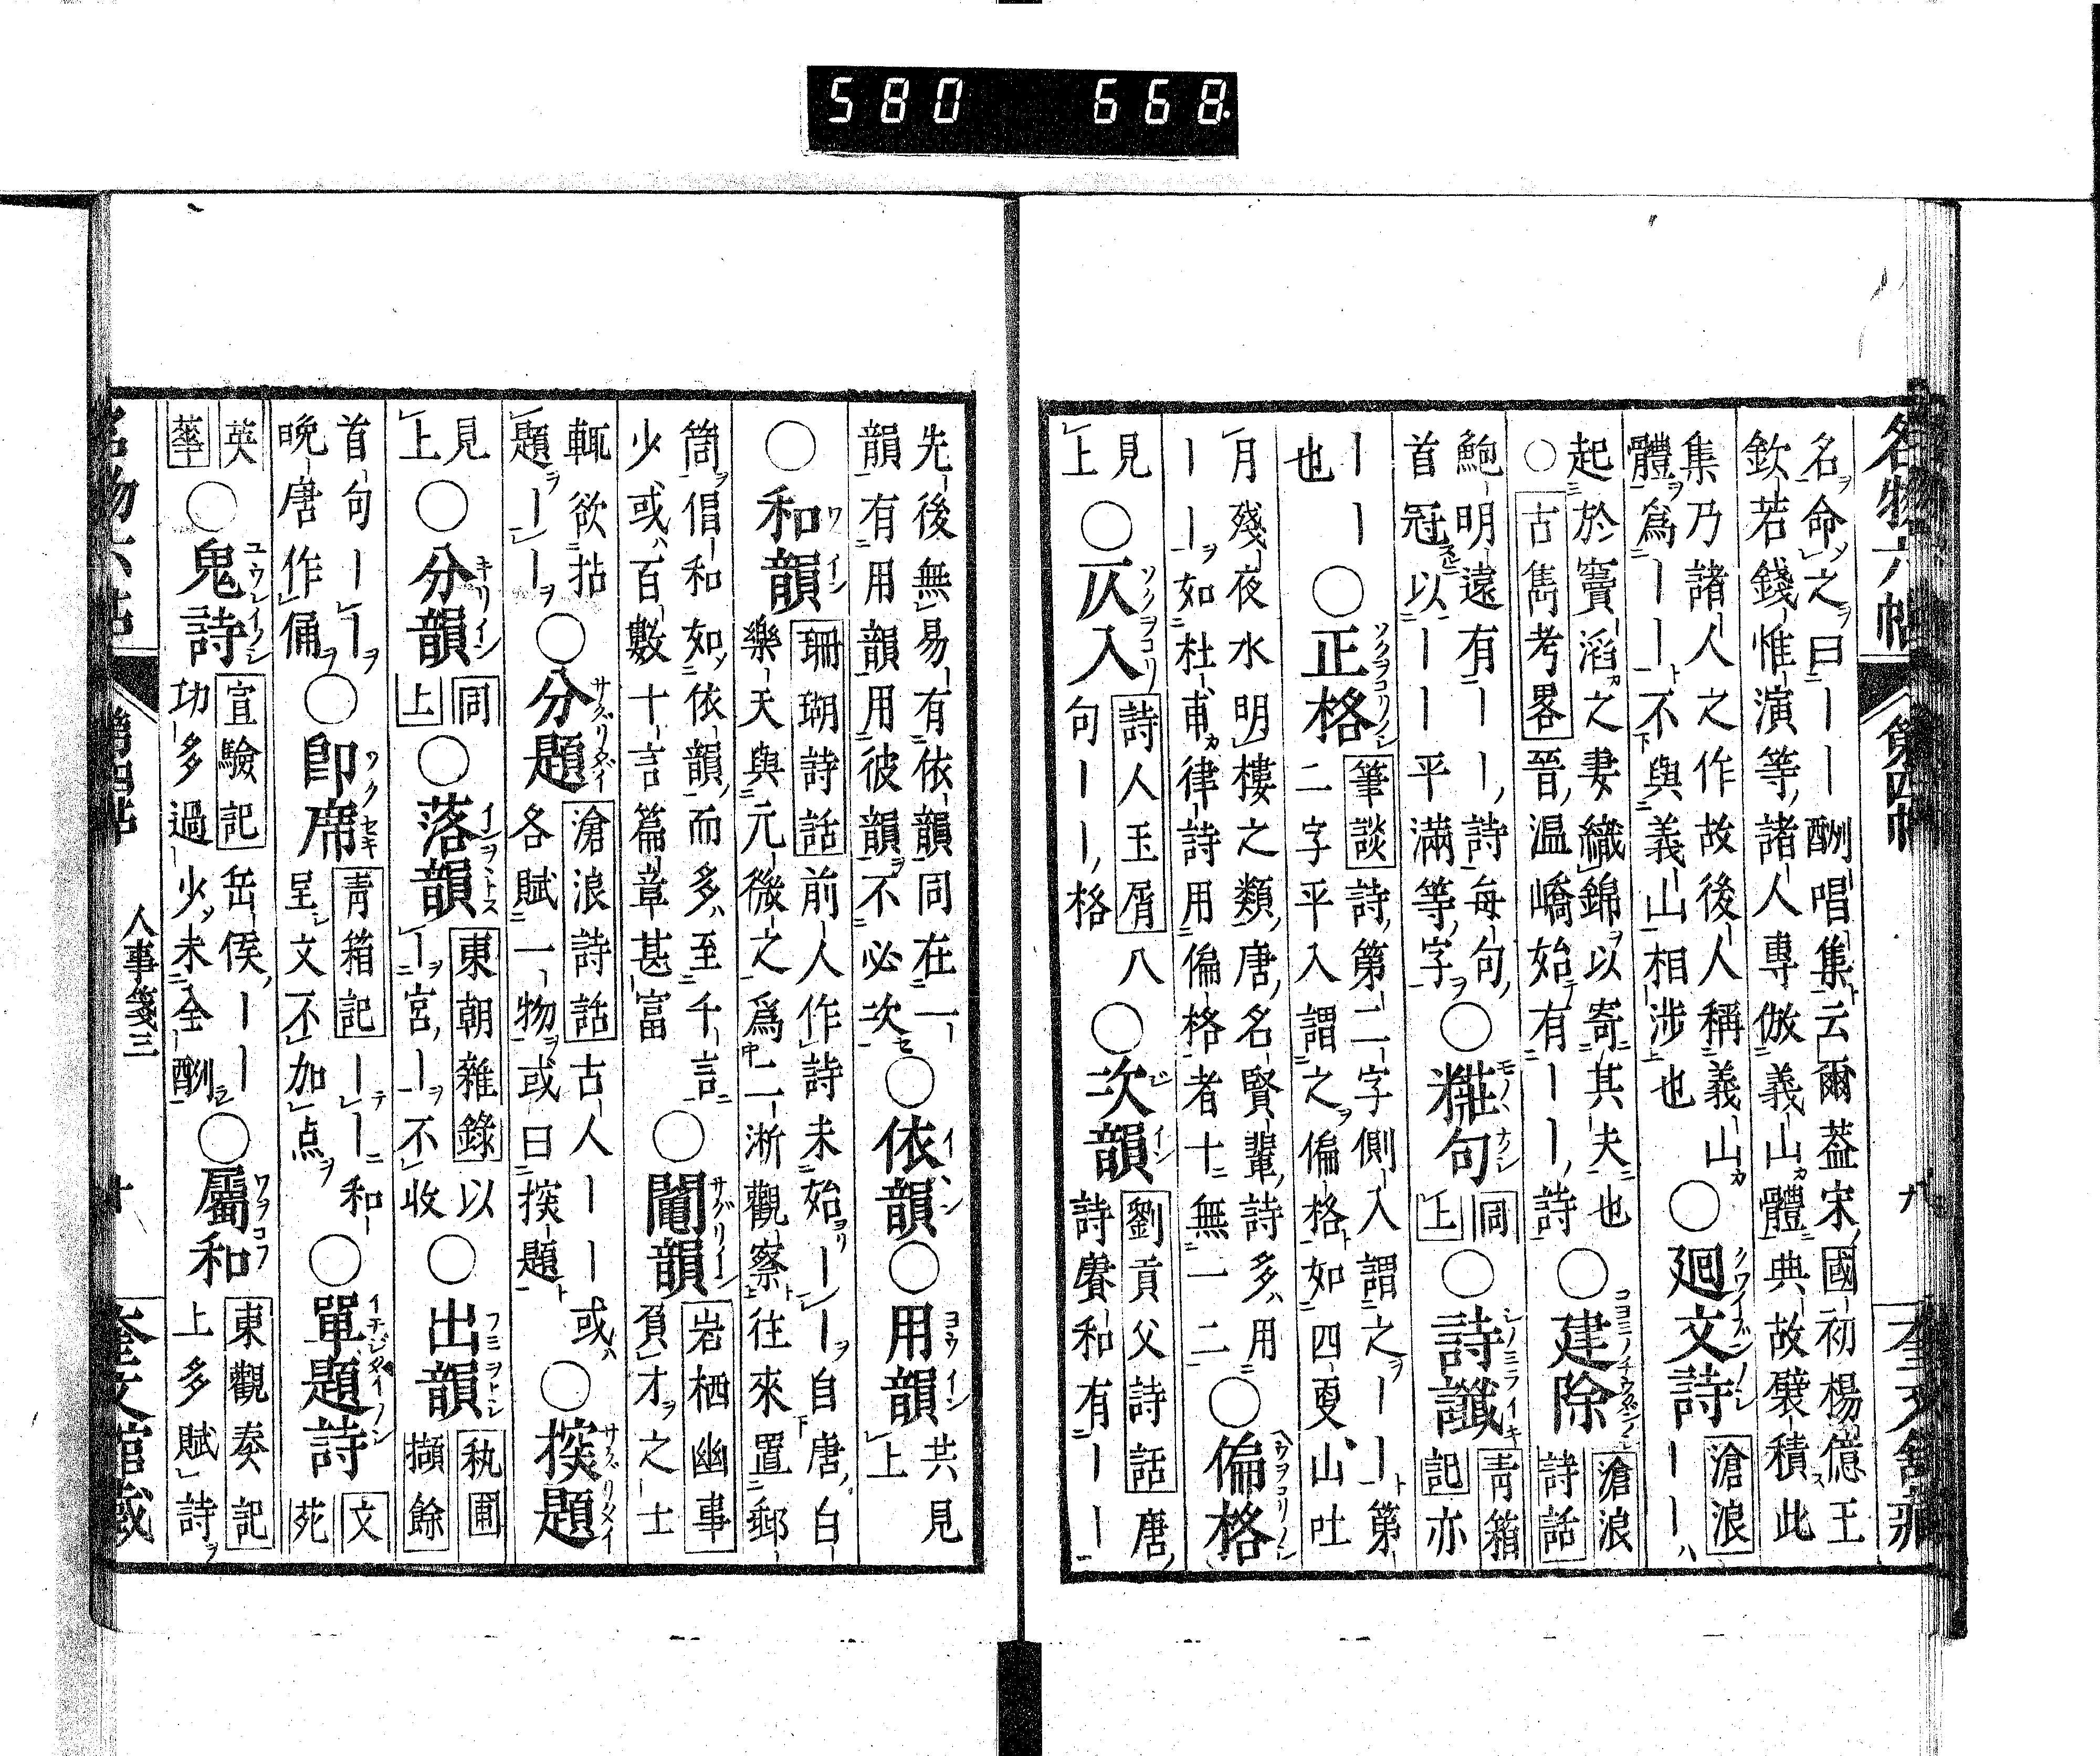 580 668
名物六帖 第四帖 九 奎文館藏
名命之曰ーーー酬唱集云爾葢宋國初楊億王
欽若錢惟演等諸人專倣義山體典故襞積此
集乃諸人之作故後人稱義山
體爲ーーー不與義山相涉也
○廻文詩
滄浪
ーーー
起於竇滔之妻織錦以寄其夫也
○古雋考畧晉温嶠始有ーーー詩
○建除
滄浪
詩話
鮑明遠有ーーー詩每句
首冠以ーーー平滿等字
○粧句
同
上
○詩讖
靑箱
記亦
ーー
也
○正格
筆談詩第二字側入謂之ーー第
二字平入謂之偏格如四更山吐
月殘夜水明樓之類唐名賢輩詩多用
ーーー如杜甫律詩用偏格者十無一二
○偏格
見
上
○仄入
詩人玉屑八
句ーー格
○次韻
劉貢父詩話唐
詩賡和有ーー
先後無易有依韻同在一
韻有用韻用彼韻不必次
○依韻
○用韻
共見
上
○和韻
珊瑚詩話前人作詩未始ーー自唐白
樂天與元微之爲二浙觀察往來置郵
筒倡和如依韻而多至千言
少或百數十言篇章甚富
○鬮韻
岩栖幽事
負才之士
輒欲拈
題ーー
○分題
滄浪詩話古人ーー或
各賦一物或曰探題
○探題
見
上
○分韻
同
上
○落韻
東朝雜錄以
ーー宮ー不收
○出韻
秇圃
擷餘
首句ーー
晚唐作俑
○卽席
靑箱記ーー和
呈文不加点
○單題詩
文
苑
英
華
○鬼詩
宣驗記岳侯ーー
功多過少未全酬
○屬和
東觀奏記
上多賦詩
名物六帖 第四帖 人事箋三 十 奎文館藏